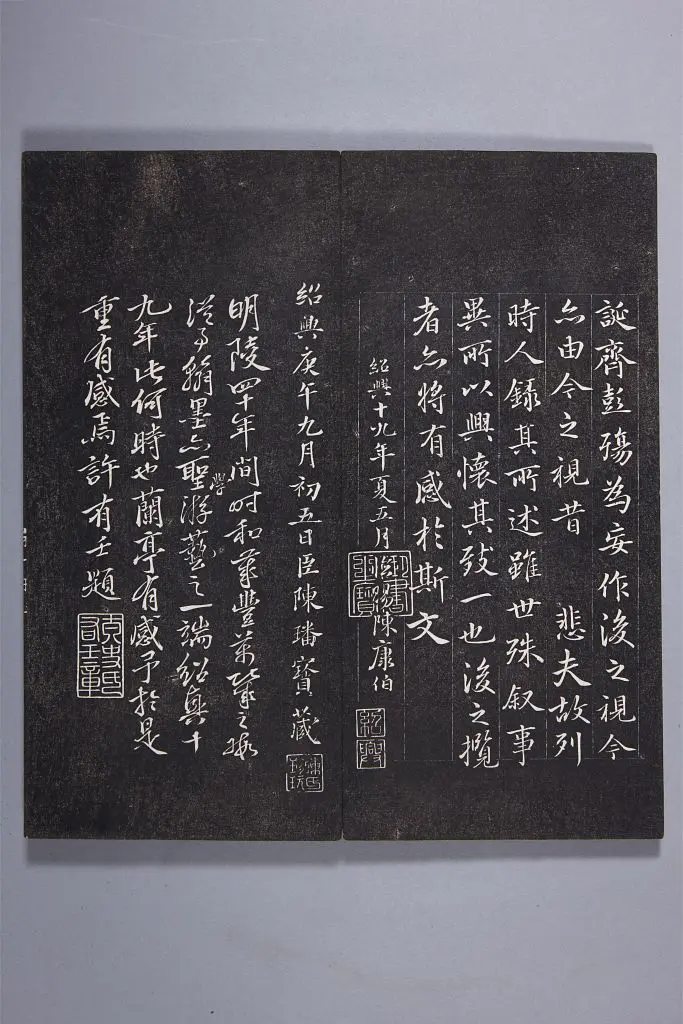 誕齊彭殤為妄作後之視今
亦由今之視昔 悲夫故列
時人錄其所述雖世殊叙事
異所以興懷其致一也後之攬
者亦將有感於斯文
紹興十九年夏五月 陳康伯
紹興
紹興庚午九月初五日臣陳璠寶藏
陳氏珍玩
明陵四十年間時和歲豐萬幾之暇
從事翰墨亦聖學游藝之一端紹興十
九年此何時也蘭亭有感予於是
重有感焉許有壬題